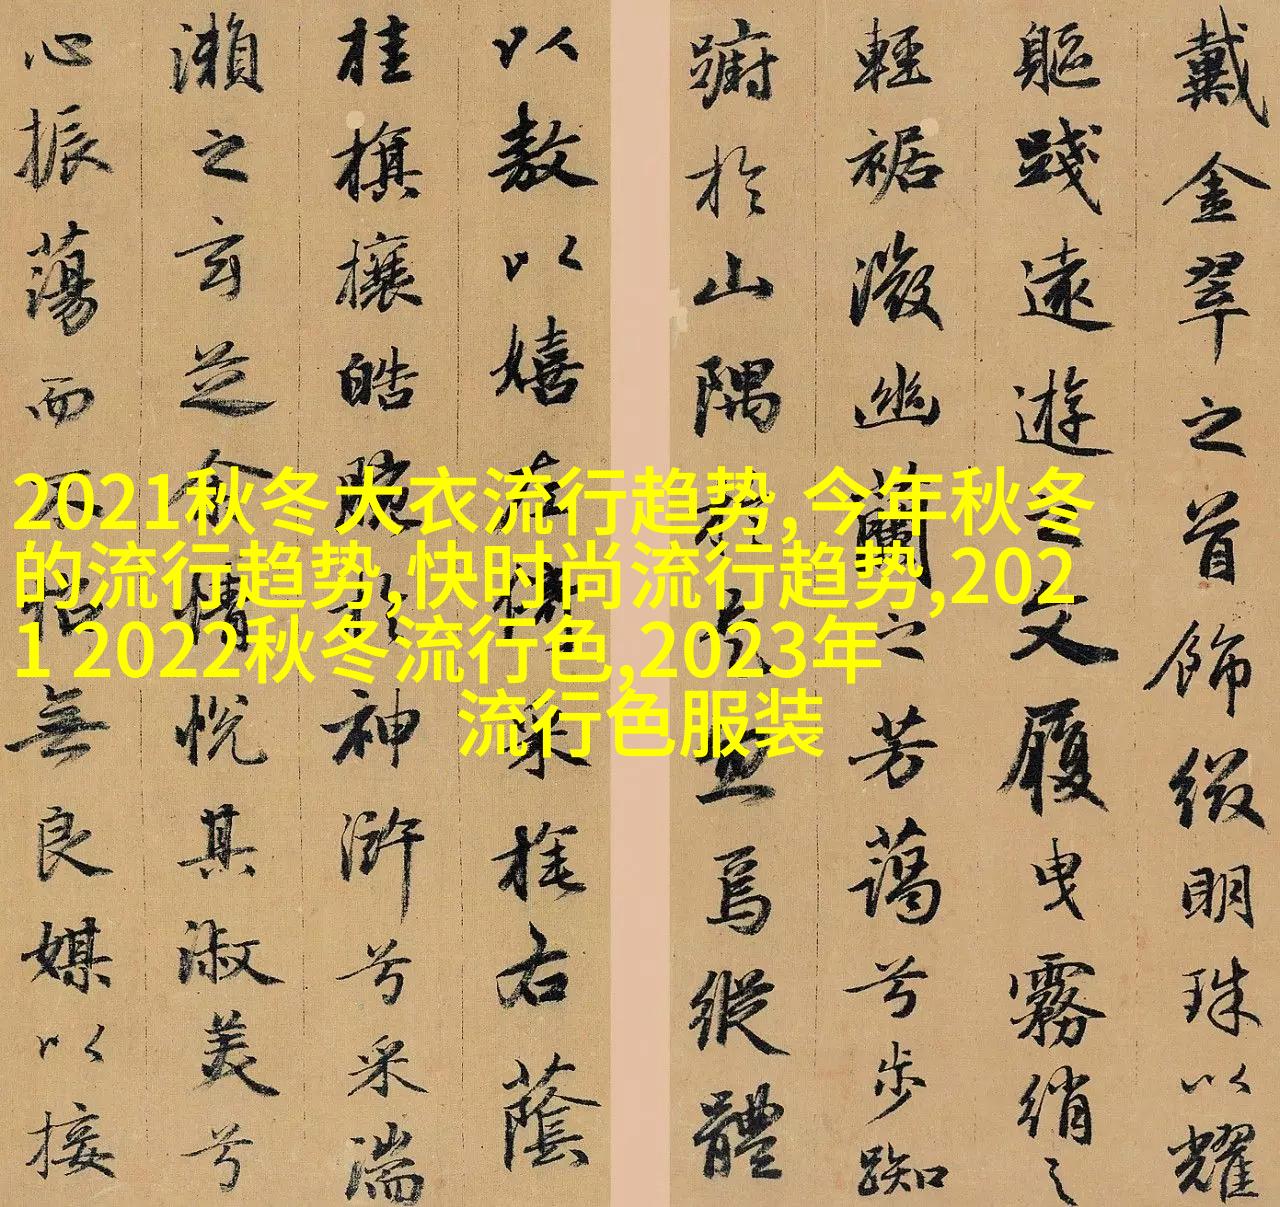 戴金翠之首飾綴明珠以耀
軀踐遠遊之文履曳霧綃之
輕裾微幽蘭之芳藹兮步踟
躕於山隅於是忽焉縱體
以敖以嬉左倚采旄右蔭
桂旗攘皓腕於神滸兮采湍
瀨之玄芝余情悅其淑美兮
心振蕩而不怡無良媒以接
2021秋冬大衣流行趋势,今年秋冬
的流行趋势,快时尚流行趋势,202
1 2022秋冬流行色,2023年
流行色服装